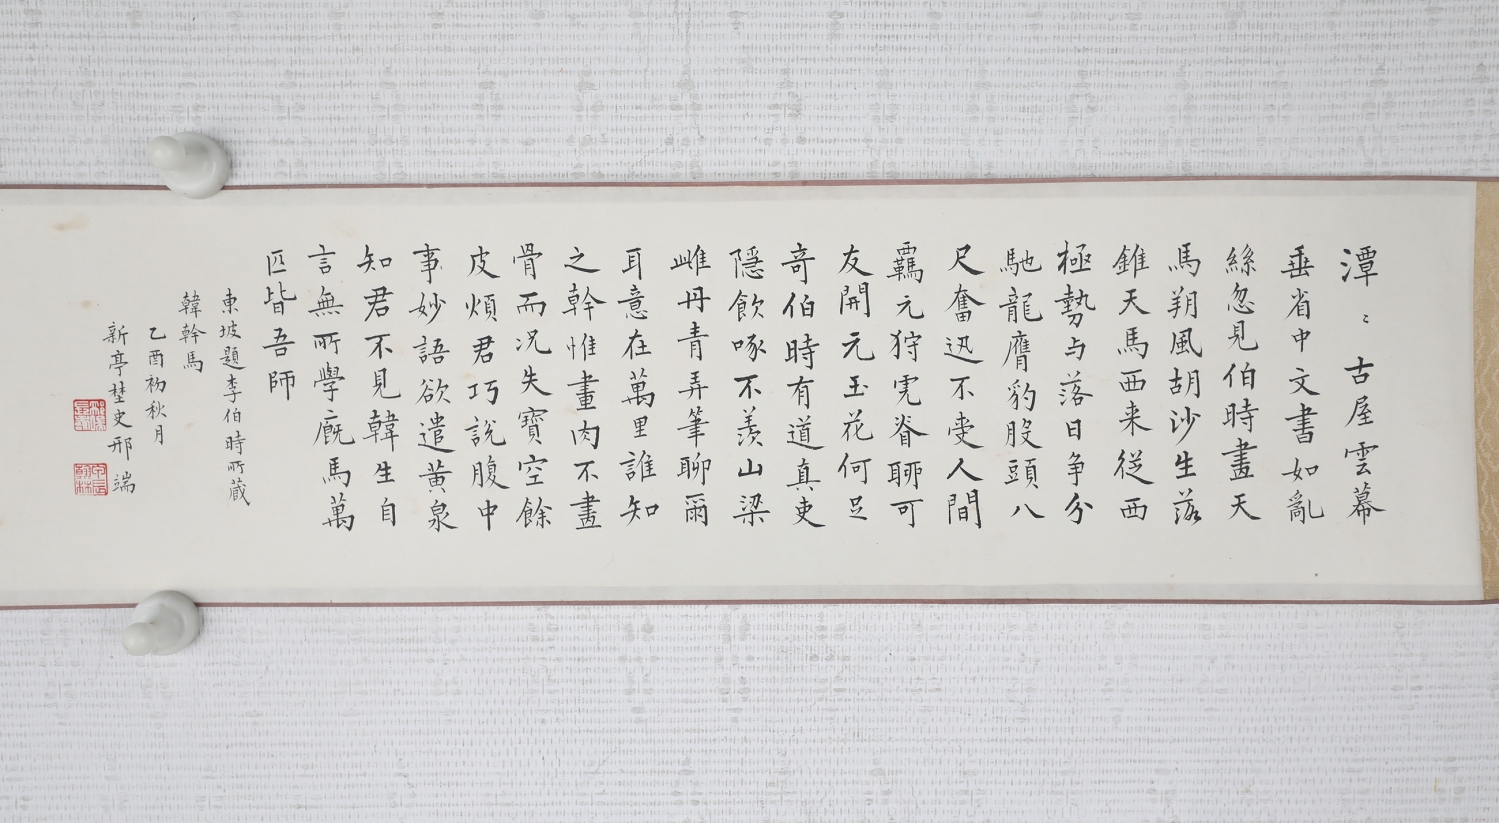 潭〻古屋雲幕
垂省中文書如亂
絲忽見伯時畫天
馬朔風胡沙生落
錐天馬西来從西
極勢与落日争分
馳龍膺豹股頭八
尺奮迅不受人間
羈元狩虎脊聊可
友開元玉花何足
奇伯時有道真吏
隱飲啄不羨山梁
雌丹青弄筆聊爾
耳意在萬里誰知
之幹惟畫肉不畫
骨而況失實空餘
皮煩君巧說腹中
事妙語欲遣黄泉
知君不見韓生自
言無所學廐馬萬
匹皆吾師
東坡題李伯時所蔵
韓幹馬
乙酉初秋月
新亭埜史邢端